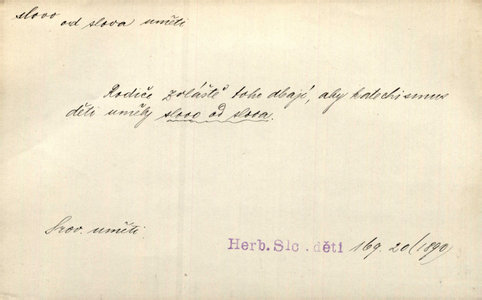 slovo
od slova uměti
Rodiče zvláště toho dbají, aby katechismus
děti uměly slovo od slova.
Srov. uměti
Herb. Slc . děti 169. 20 (1890)